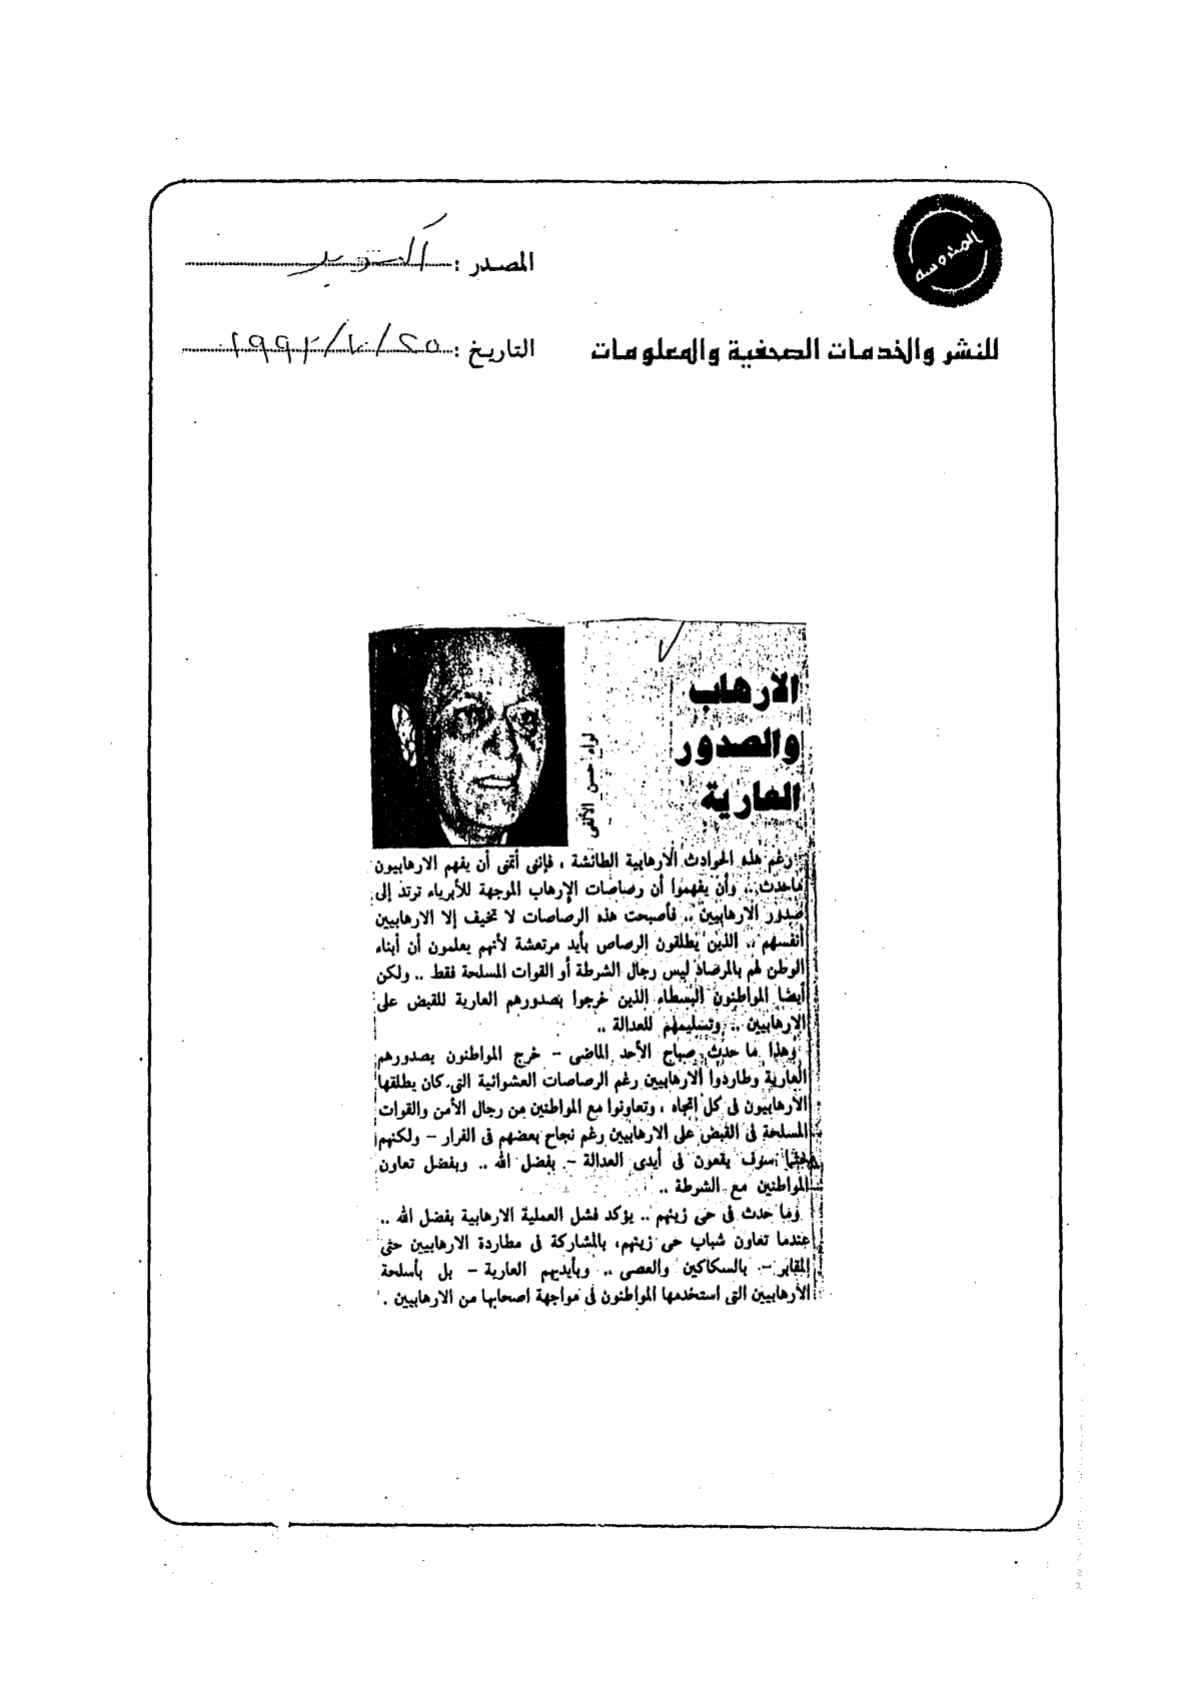 المحروسة
المصدر : أكتوبر
للنشر والخدمات الصحفية والمعلومات
التاريخ : ٢٥/١٠/١٩٩٢
الارهاب
والصدور
العارية
لواء حسن الألفى
رغم هذه الحوادث الارهابية الطائشة ، فإننى أتمنى أن يفهم الارهابيون
ماحدث .. وأن يفهموا أن رصاصات الإرهاب الموجهة للأبرياء ترتد إلى
صدور الارهابيين .. فأصبحت هذه الرصاصات لا تخيف إلا الارهابيين
أنفسهم .. الذين يطلقون الرصاص بأيد مرتعشة لأنهم يعلمون أن أبناء
الوطن لهم بالمرصاد ليس رجال الشرطة أو القوات المسلحة فقط .. ولكن
أيضا المواطنون البسطاء الذين خرجوا بصدورهم العارية للقبض على
الارهابيين .. وتسليمهم للعدالة ..
وهذا ما حدث صباح الأحد الماضى – خرج المواطنون بصدورهم
العارية وطاردوا الارهابيين رغم الرصاصات العشوائية التى كان يطلقها
الارهابيون فى كل اتجاه ، وتعاونوا مع المواطنين من رجال الأمن والقوات
المسلحة فى القبض على الارهابيين رغم نجاح بعضهم فى الفرار – ولكنهم
حتما سوف يقعون فى أيدى العدالة – بفضل الله .. وبفضل تعاون
المواطنين مع الشرطة ..
وما حدث فى حى زينهم .. يؤكد فشل العملية الارهابية بفضل الله ..
عندما تعاون شباب حى زينهم، بالمشاركة فى مطاردة الارهابيين حتى
المقابر – بالسكاكين والعصى .. وبأيديهم العارية – بل بأسلحة
الارهابيين التى استخدمها المواطنون فى مواجهة اصحابها من الارهابيين .